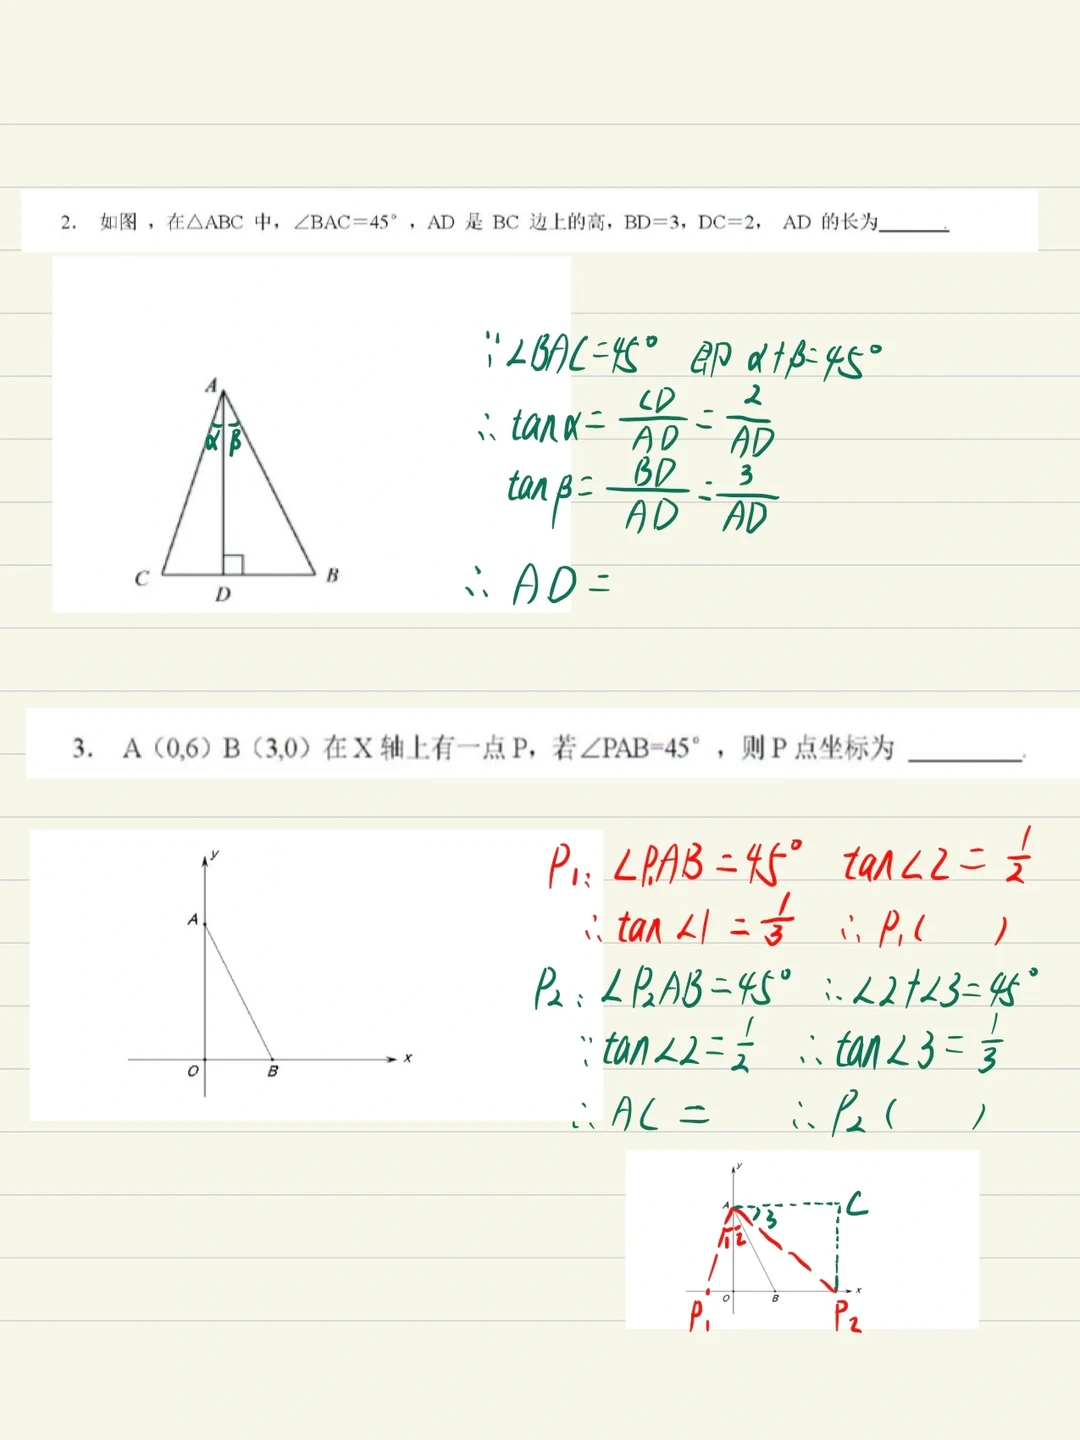 2. 如图，在△ABC 中，∠BAC=45°，AD 是 BC 边上的高，BD=3，DC=2， AD 的长为______.
∵∠BAC=45° 即 α+β=45°
∴ tanα= CD/AD = 2/AD
tanβ= BD/AD = 3/AD
∴ AD =
A
α β
C
D
B
3. A（0,6）B（3,0）在 X 轴上有一点 P，若∠PAB=45°，则 P 点坐标为 ________.
P₁: ∠P₁AB=45° tan∠2=1/2
∴tan∠1=1/3 ∴P₁( )
P₂: ∠P₂AB=45° ∴∠2+∠3=45°
∵tan∠2=1/2 ∴tan∠3=1/3
∴AC= ∴P₂( )
y
A
O
B
x
y
A
C
3
1 2
O
B
x
P₁
P₂